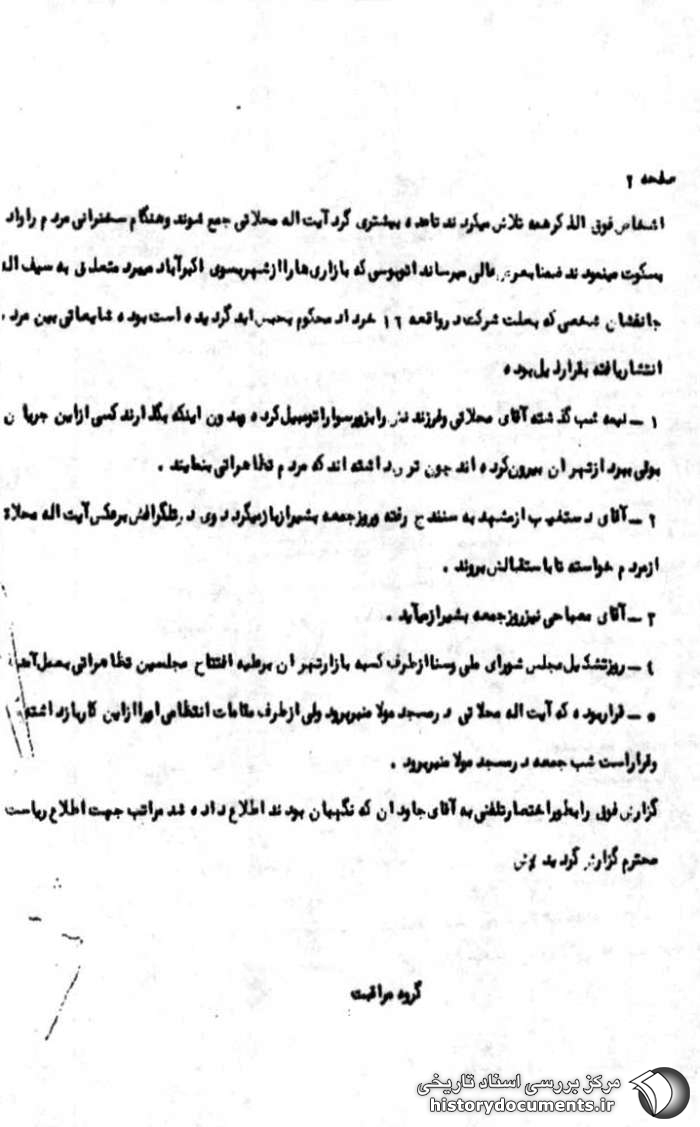 صفحه ۲
اشخاص فوق الذکر همه تلاش میکردند تا عده بیشتری گرد آیت اله محلاتی جمع شوند و هنگام سخنرانی مردم را واد
بسکوت مینمودند ضمنا بعرض عالی میرساند اتوبوسی که بازاری ها را از شهر بسوی اکبرآباد میبرد متعلق به سیف اله
جانفشان شخصی که بعلت شرکت در واقعه ۱۶ خرداد محکوم بحبس ابد گردیده است بوده شایعاتی بین مرد
انتشار یافته بقرار ذیل بوده
۱ – نیمه شب گذشته آقای محلاتی و فرزندش را بزور سوار اتومبیل کرده و بدون اینکه بگذارند کسی از این جریان
بوئی ببرد از تهران بیرون کرده اند چون ترس داشته اند که مردم تظاهراتی بنمایند .
۲ – آقای دستغیب از مشهد به سنندج رفته و روز جمعه بشیراز بازمیگردد وی در تلگرافش برعکس آیت اله محلاتی
از مردم خواسته تا باستقبالش بروند .
۳ – آقای مصباحی نیز روز جمعه بشیراز میآید .
۴ – روز تشکیل مجلس شورای ملی و سنا از طرف کسبه بازار تهران برعلیه افتتاح مجلسین تظاهراتی بعمل آمده
۵ – قرار بوده که آیت اله محلاتی در مسجد مولا منبر برود ولی از طرف مقامات انتظامی او را از این کار بازداشته
و قرار است شب جمعه در مسجد مولا منبر برود .
گزارش فوق را بطور اختصار تلفنی به آقای جاودان که نگهبان بودند اطلاع داده شد مراتب جهت اطلاع ریاست
محترم گزارش گردید
گروه مراقبت
مرکز بررسی اسناد تاریخی
historydocuments.ir